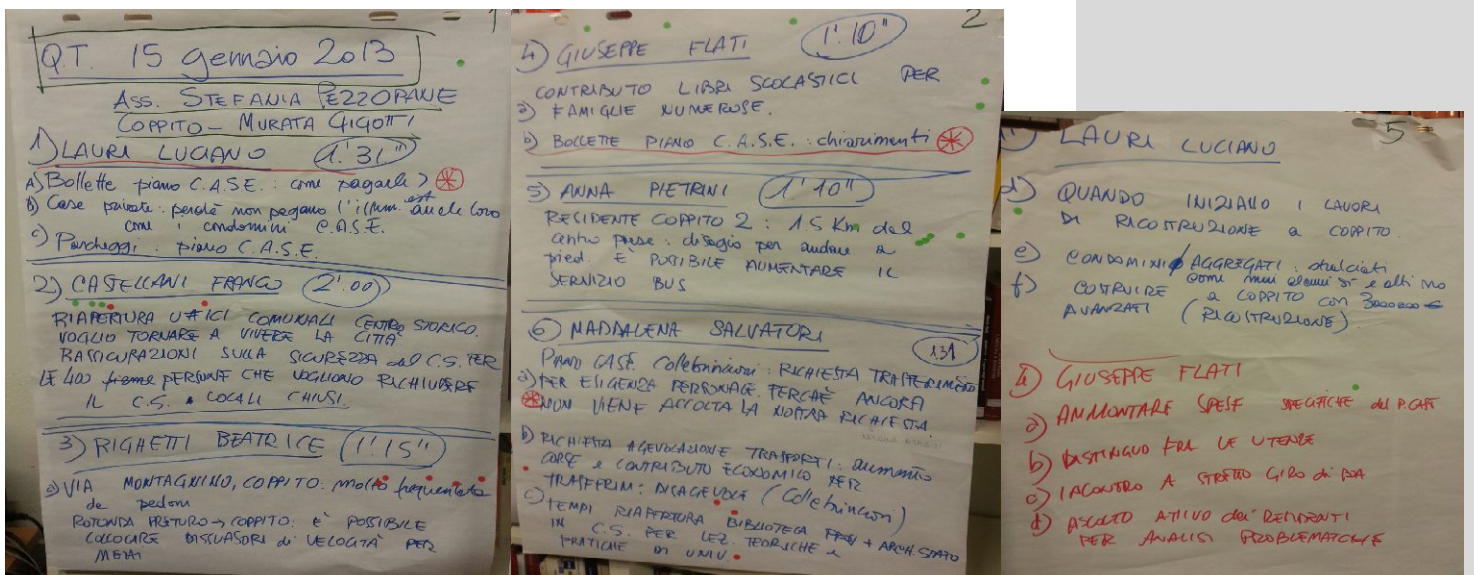 1
Q.T. 15 gennaio 2013
ASS. STEFANIA PEZZOPANE
COPPITO - MURATA GIGOTTI
1) LAURI LUCIANO 1'.31"
A) Bollette piano C.A.S.E.: come pagarle?
B) Case private: perché non pagano l'illum. est anche loro
come i condomini C.A.S.E.
c) Parcheggi: piano C.A.S.E.
2) CASTELLANI FRANCO 2'.00
RIAPERTURA UFFICI COMUNALI CENTRO STORICO.
VOGLIO TORNARE A VIVERE LA CITTÀ
RASSICURAZIONI SULLA SICUREZZA del C.S. PER
LE 400 firme PERSONE CHE VOGLIONO RICHIUDERE
IL C.S. LOCALI CHIUSI.
3) RIGHETTI BEATRICE 1'.15"
a) VIA MONTAGNINO, COPPITO: molto frequentata
da pedoni
ROTONDA PRETURO → COPPITO: è POSSIBILE
COLLOCARE DISSUASORI di VELOCITÀ PER
MEZZI
2
4) GIUSEPPE FLATI 1'.10"
CONTRIBUTO LIBRI SCOLASTICI PER
a) FAMIGLIE NUMEROSE.
b) BOLLETTE PIANO C.A.S.E.: chiarimenti
5) ANNA PIETRINI 1'.10"
RESIDENTE COPPITO 2: 1.5 Km dal
centro paese: disagio per andare a
piedi. È POSSIBILE AUMENTARE IL
SERVIZIO BUS
6) MADDALENA SALVATORI 1.31
PIANO CASE Collebrincioni: RICHIESTA TRASFERIMENTO
a) PER ESIGENZA PERSONALE. PERCHÈ ANCORA
NON VIENE ACCOLTA LA NOSTRA RICHIESTA.
b) RICHIESTA AGEVOLAZIONE TRASPORTI: aumento
CORSE e CONTRIBUTO ECONOMICO PER
TRASFERIM: DISAGEVOLE (Collebrincioni)
c) TEMPI RIAPERTURA BIBLIOTECA + ARCH. STATO
IN C.S. PER LEZ. TEORICHE e
PRATICHE DI UNIV.
5
1) LAURI LUCIANO
d) QUANDO INIZIANO I LAVORI
DI RICOSTRUZIONE a COPPITO.
e) CONDOMINI AGGREGATI: stralciati
come mai alcuni sì e altri no
f) COSTRUIRE a COPPITO con 3000000 €
AVANZATI (RICOSTRUZIONE).
4) GIUSEPPE FLATI
a) AMMONTARE SPESE SPECIFICHE del P. CASE
b) DISTINGUO FRA LE UTENZE
c) INCONTRO A STRETTO GIRO di
d) ASCOLTO ATTIVO dei RESIDENTI
PER ANALISI PROBLEMATICHE